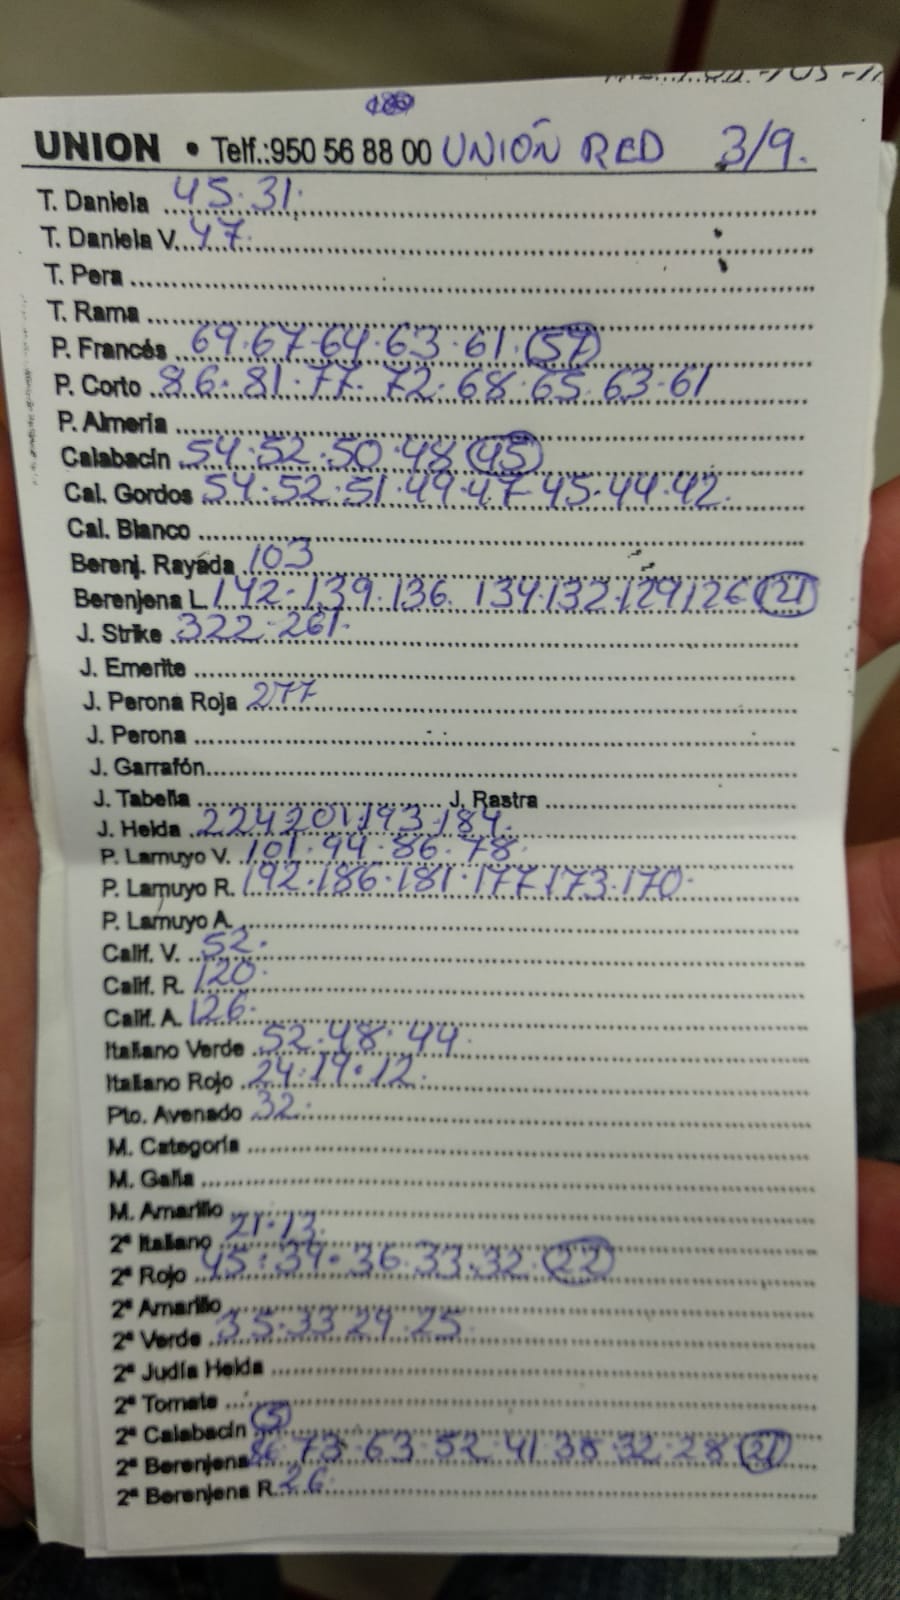 UNION • Telf.:950 56 88 00 UNIÓN RED 3/9.
T. Daniela 45.31.
T. Daniela V. 47.
T. Pera
T. Rama
P. Francés 69.67-64.63.61.(57)
P. Corto 86.81.77.72.68.65.63-61
P. Almería
Calabacín 54.52.50.48 (45)
Cal. Gordos 54.52.51.49.47-45.44.42.
Cal. Blanco
Berenj. Rayada 103
Berenjena L. 142.139.136. 134.132.129.126 (121)
J. Strike 322.261.
J. Emerite
J. Perona Roja 277
J. Perona
J. Garrafón
J. Tabella J. Rastra
J. Helda 224 201.193.184.
P. Lamuyo V. 101.94.86.78.
P. Lamuyo R. 192.186.181.177.173.170.
P. Lamuyo A.
Calif. V. 52.
Calif. R. 120.
Calif. A. 126.
Italiano Verde 52.48.44.
Italiano Rojo 24.19.12.
Pto. Avenado 32.
M. Categoría
M. Galia
M. Amarillo
2ª Italiano 21.13.
2ª Rojo 45.39.36.33.32.(22)
2ª Amarillo
2ª Verde 35.33 29.25.
2ª Judía Helda
2ª Tomate
2ª Calabacín (5)
2ª Berenjena 86.73.63.52.41.38.32.28 (21)
2ª Berenjena R. 26.